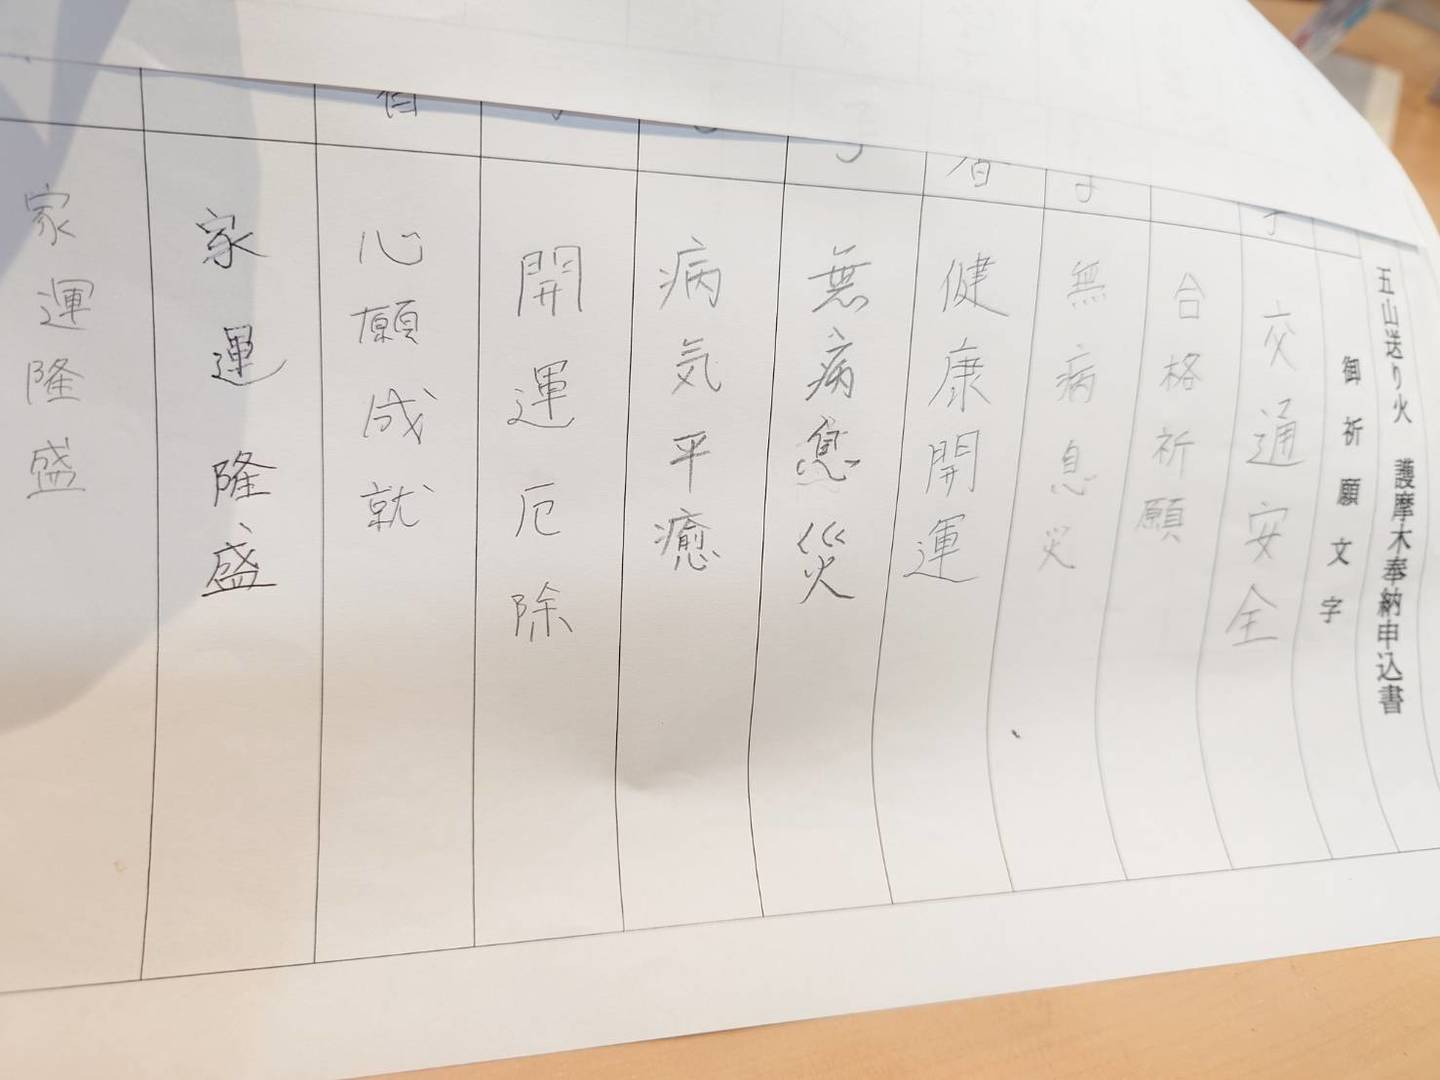 五山送り火 護摩木奉納申込書
御祈願文字
交通安全
合格祈願
無病息災
健康開運
無病息災
病気平癒
開運厄除
心願成就
家運隆盛
家運隆盛